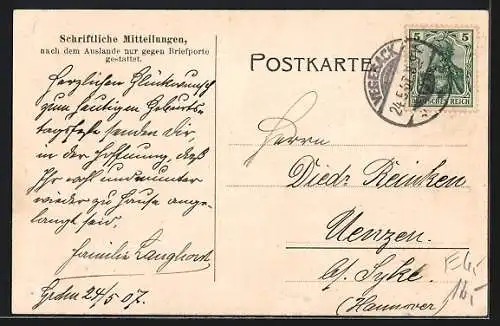 Schriftliche Mitteilungen,
nach dem Auslande nur gegen Briefporto
gestattet.
Herzlichen Glückwunsch
zum heutigen Geburts-
tagsfeste senden Dir
in der Hoffnung, daß
Ihr wohl und munter
wieder zu Hause ange-
langt seid,
Familie Langhorst
24/5 07.
POSTKARTE
5 5
DEUTSCHES REICH
VEGESACK
24.5.07
Herrn
Diedr. Reinken
Uenzen.
b/ Syke.
(Hannover)